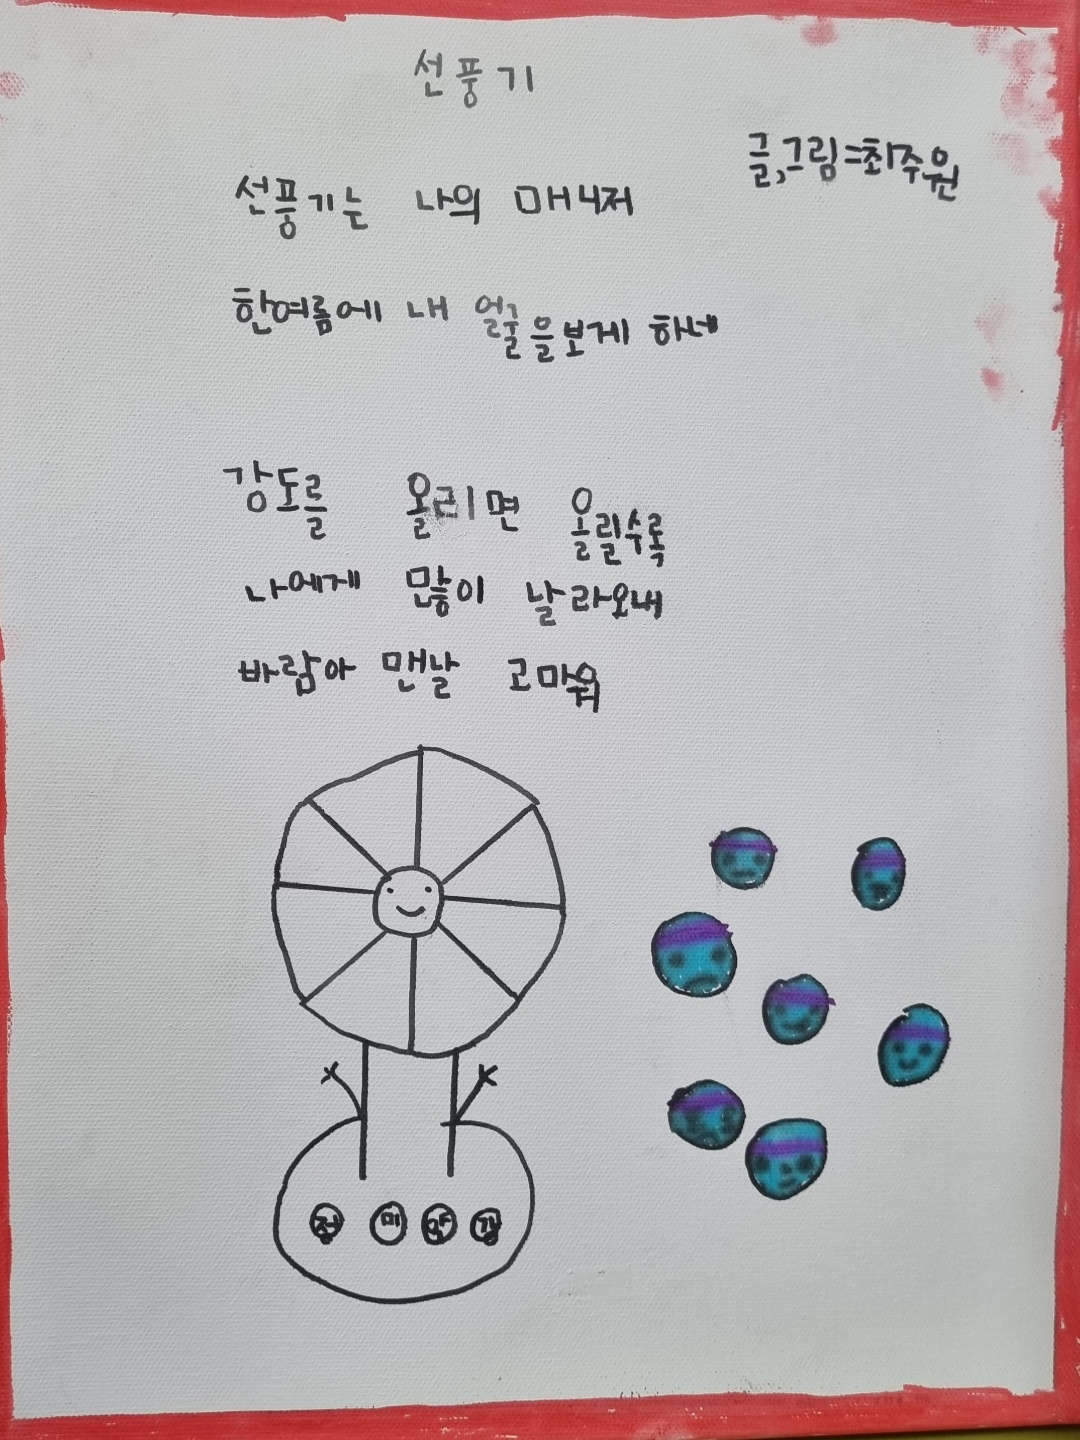 선풍기
글,그림=최주원
선풍기는 나의 매니저
한여름에 내 얼굴을보게 하네
강도를 올리면 올릴수록
나에게 많이 날라오네
바람아 맨날 고마워
정 미 약 강